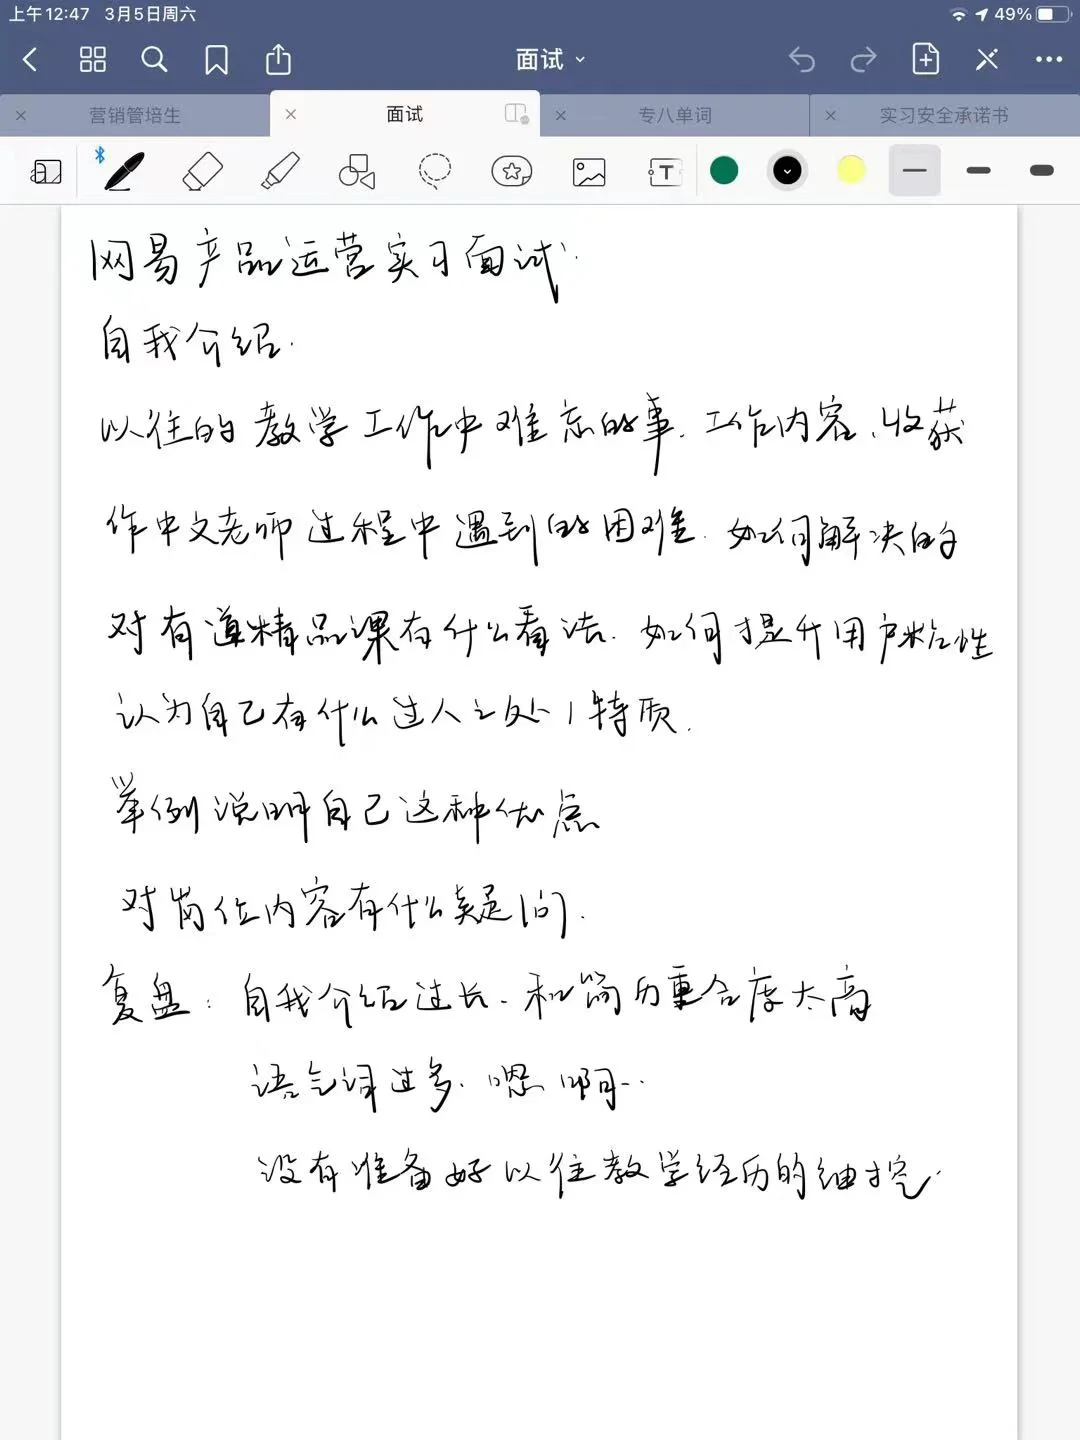 上午12:47 3月5日周六 49%
面试
营销管培生 面试 专八单词 实习安全承诺书
网易产品运营实习面试.
自我介绍.
以往的教学工作中难忘的事.工作内容、收获
作中文老师过程中遇到的困难.如何解决的
对有道精品课有什么看法.如何提升用户粘性
认为自己有什么过人之处/特质.
举例说明自己这种优点
对岗位内容有什么疑问.
复盘:自我介绍过长、和简历重合度太高
语气词过多.嗯 啊...
没有准备好以往教学经历的细挖.